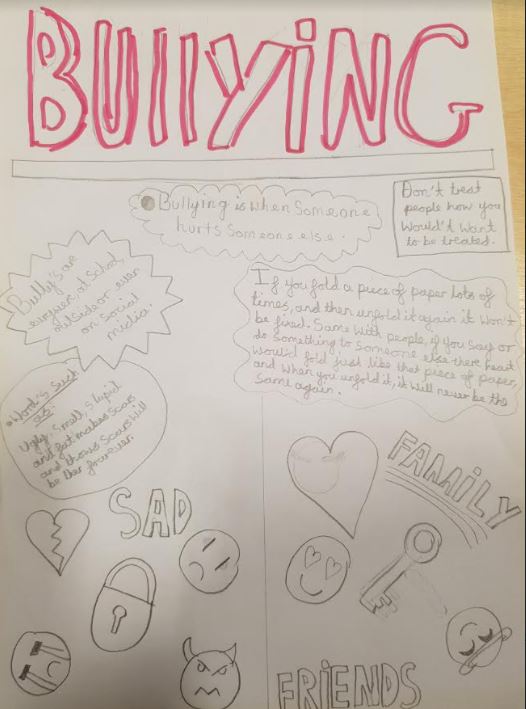 BUllYiNG
Bullying is when Someone
hurts Someone else.
Don't treat
people how you
Would't want
to be treated.
Bully's are
outside or even
on social
media.
If you fold a piece of paper lots of
times, and then unfold it again it won't
be fixed. Same with people, if you say or
do something to someone else there heart
would fold just like that piece of paper,
and when you unfold it, it will never be the
same again.
Word's Such
as:
Ugly, Small, Stupid
and fat makes scars
and thows Scars will
be ther forever.
SAD
FAMiLY
FRiENDS